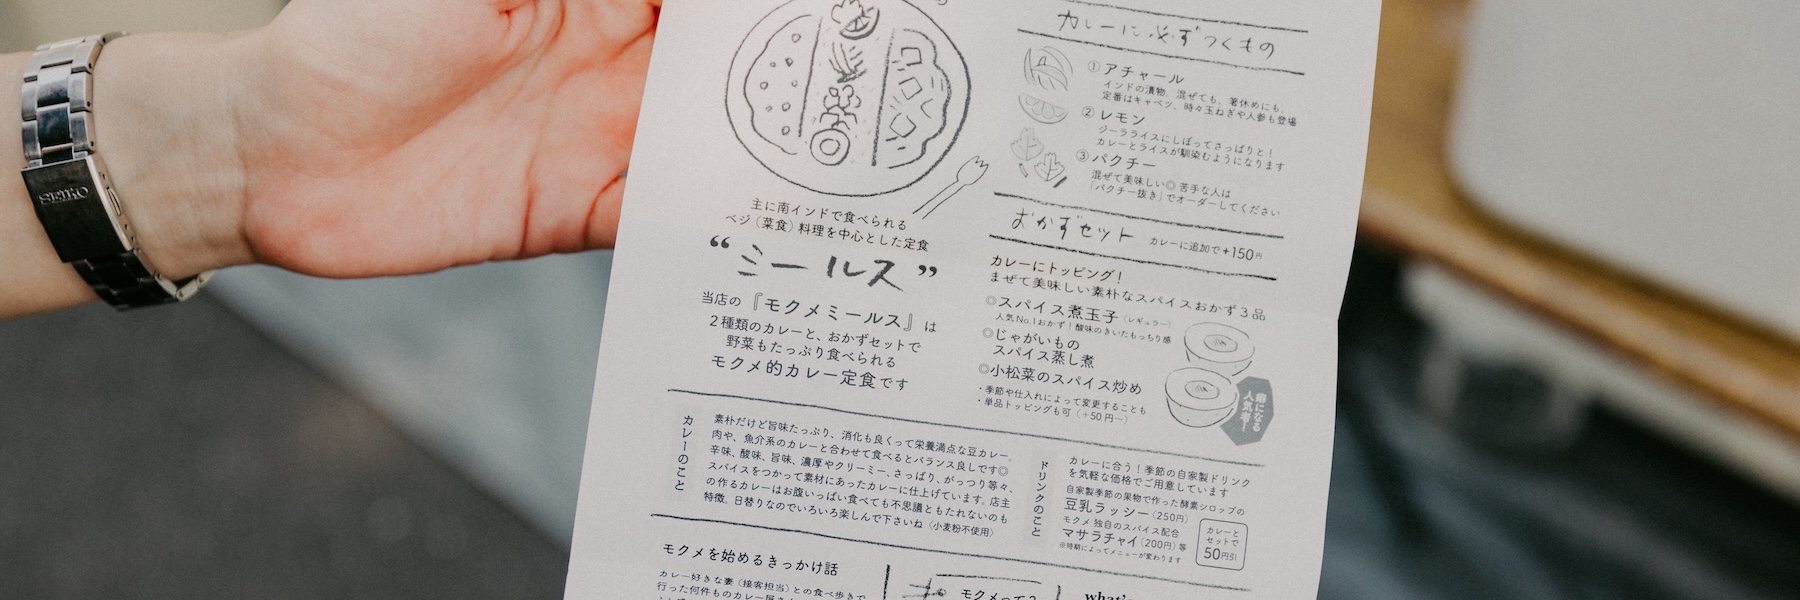 SEIKO
主に南インドで食べられる
ベジ（菜食）料理を中心とした定食
“ミールス”
当店の『モクメミールス』は
2種類のカレーと、おかずセットで
野菜もたっぷり食べられる
モクメ的カレー定食です
カレーに必ずつくもの
①アチャール
インドの漬物。混ぜても、箸休めにも。
定番はキャベツ、時々玉ねぎや人参も登場
②レモン
ジーラライスにしぼってさっぱりと！
カレーとライスが馴染むようになります
③パクチー
混ぜて美味しい◎ 苦手な人は
「パクチー抜き」でオーダーしてください
おかずセット カレーに追加で+150円
カレーにトッピング！
まぜて美味しい素朴なスパイスおかず3品
◎スパイス煮玉子（レギュラー）
人気No.1おかず！酸味のきいたもっちり感
◎じゃがいもの
スパイス蒸し煮
◎小松菜のスパイス炒め
・季節や仕入れによって変更することも
・単品トッピングも可（+50円〜）
癖になる
人気者ー
カレーのこと
素朴だけど旨味たっぷり、消化も良くって栄養満点な豆カレー。
肉や、魚介系のカレーと合わせて食べるとバランス良しです◎
辛味、酸味、旨味、濃厚やクリーミー、さっぱり、がっつり等々、
スパイスをつかって素材にあったカレーに仕上げています。店主
の作るカレーはお腹いっぱい食べても不思議ともたれないのも
特徴。日替りなのでいろいろ楽しんで下さいね〈小麦粉不使用〉
ドリンクのこと
カレーに合う！季節の自家製ドリンク
を気軽な価格でご用意しています
自家製季節の果物で作った酵素シロップの
豆乳ラッシー（250円）
モクメ独自のスパイス配合
マサラチャイ（200円）等
※時期によってメニューが変わります
カレーと
セットで
50円引
モクメを始めるきっかけ話
カレー好きな妻（接客担当）との食べ歩きで
行った何件ものカレー屋さん
モクメって？
what's